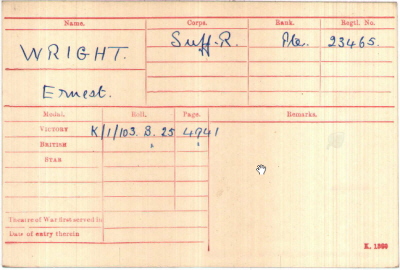 Name. Corps. Rank. Regtl. No.
WRIGHT. Suff. R. Pte. 23465.
Ernest.
Medal. Roll. Page. Remarks.
VICTORY K/1/103. B. 25 4941
BRITISH " "
STAR
Theatre of War first served in
Date of entry therein
K. 1380